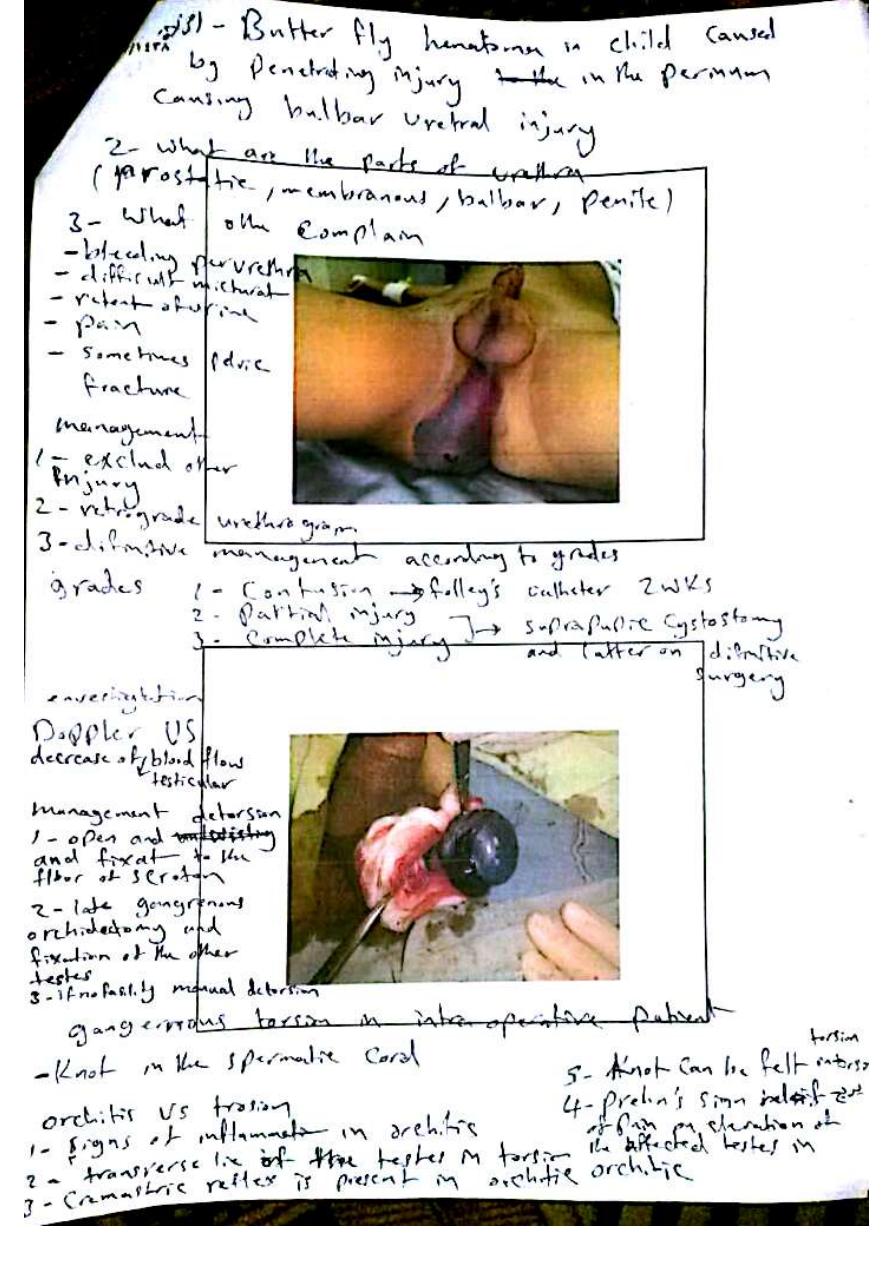 - Butter fly hematoma in child caused
by penetrating injury in the perinum
causing bulbar uretral injury
2- what are the parts of urethra
(prostatic, membranous, bulbar, penile)
3- what the complain
- bleeding per urethra
- difficult micturat
- retent of urine
- pain
- sometimes pelvic
fracture
management
1- exclud other
injury
2- retrograde urethrogram
3- difinitive management according to grades
grades
1- Contusion → folley's catheter 2 wks
2- Partial injury
3- Complete injury → suprapupic cystostomy
and latter on difinitive
surgery
Doppler US
decrease of blood flow
testicular
management detorsion
1- open and
and fixat to the
floor of scrotum
2- late gangrenous
orchidectomy and
fixation of the other
testes
3- if no fasility manual detorsion
gangerrous torsion in intra operative patient
- Knot in the spermatic cord
orchitis VS trosion
1- signs of inflammat in orchitis
2- transverse lie of testes in torsion
3- Cremastric reflex is present in orchitic
4- Prehn's sign
of pain on elevation of
the affected testes in
orchitic
5- Knot can be felt
torsion